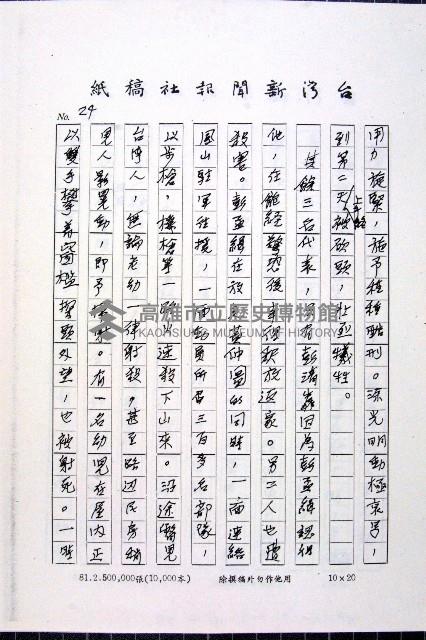 台灣新聞報社稿紙
No. 24
用力旋緊，施予種種酷刑。涂光明動極哀号，
到第二天上午被砍頭，壯烈犧牲。
其餘三名代表，只有彭清靠因為彭孟緝認供
他，在飽經驚恐後釋放返家。另二人也遭
殺害。彭孟緝在放 仲溫的同時，一面連絡
鳳山駐軍往援，一面動員所有三百多名部隊，
以步槍，機槍等一路 速殺下山來。沿途瞥見
台灣人，無論老幼一律射殺，甚至路边民房稍
見人影晃動，即予 射。有一名幼兒在屋內正
以雙手攀着窗檻探頭外望，也被射死。一時
81.2.500,000張(10,000本)
除撰稿外勿作他用
10×20
高雄市立歷史博物館
KAOHSIUNG MUSEUM OF HISTORY